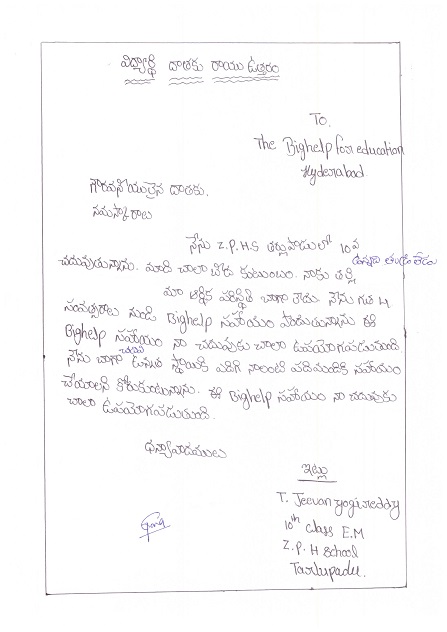 విద్యార్థి దాతకు రాయు ఉత్తరం
To,
The Bighelp for education
Hyderabad
గౌరవనీయులైన దాతకు,
నమస్కారాలు
నేను Z.P.H.S తర్లుపాడులో 10వ
చదువుతున్నాను. మాది చాలా పేద కుటుంబం. నాకు తల్లి ఉన్నది తండ్రి లేడు
మా ఆర్థిక పరిస్థితి బాగా లేదు. నేను గత 4
సంవత్సరాల నుండి Bighelp సహాయం పొందుతున్నాను ఈ
Bighelp సహాయం నా చదువుకు చాలా ఉపయోగపడుతుంది
నేను బాగా చదివి ఉన్నత స్థాయికి ఎదిగి నాలాంటి పదిమందికి సహాయం
చేయాలని కోరుకుంటున్నాను. ఈ Bighelp సహాయం నా చదువుకు
చాలా ఉపయోగపడుతుంది.
ధన్యవాదములు
ఇట్లు
T. Jeevan yogireddy
10th class E.M
Z.P.H School
Tarlupadu.